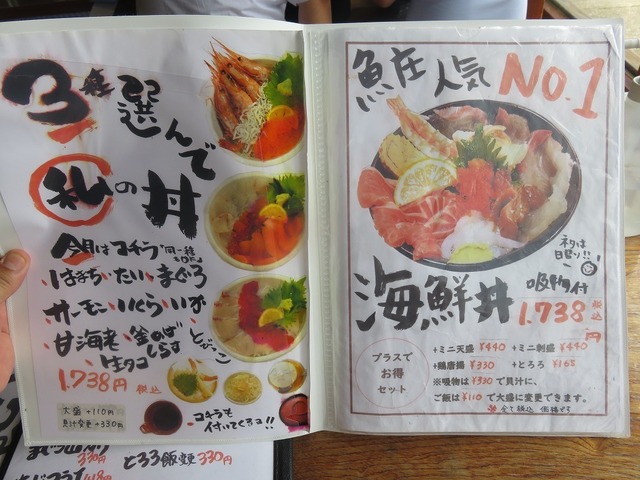 3種
選んで
私の丼
今月はコチラ 同一種もOK♪
・はまち・たい・まぐろ
・サーモン・いくら・いか
・甘海老・釜あげしらす・とびこ
・生タコ
1.738円 税込
大盛 +110円
貝汁変更 +330円
コチラも
付いてくるヨ!!
魚庄 人気 NO.1
ネタは
日替り!!
海鮮丼
吸物付
1.738円 税込
プラスで
お得
セット
+ミニ天盛 ¥440 +ミニ刺盛 ¥440
+鶏唐揚 ¥330 +とろろ ¥165
※吸物は¥330で貝汁に、
ご飯は¥110で大盛に変更できます。
全て税込価格です
330円
とろろ飯変 330円